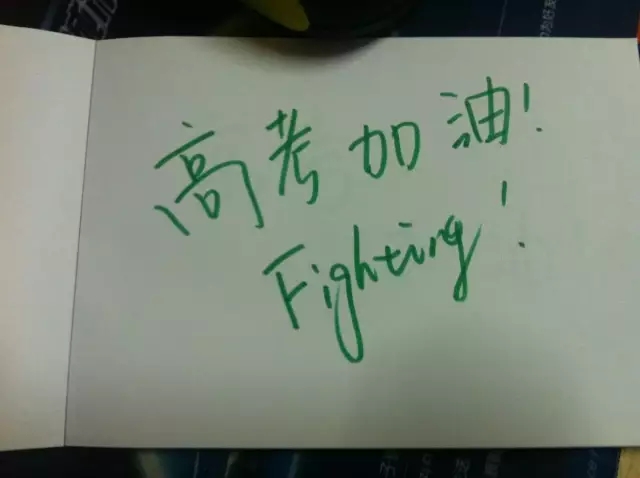 高考加油!
Fighting!